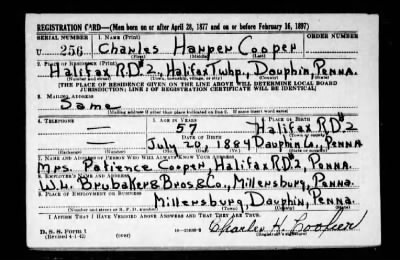 REGISTRATION CARD—(Men born on or after April 28, 1877 and on or before February 16, 1897)
SERIAL NUMBER 1. NAME (Print) ORDER NUMBER
U 256 Charles Harper Cooper
(First) (Middle) (Last)
2. PLACE OF RESIDENCE (Print)
Halifax R.D.#2., Halifax Twhp., Dauphin, Penna.
(Number and street) (Town, township, village, or city) (County) (State)
[THE PLACE OF RESIDENCE GIVEN ON THE LINE ABOVE WILL DETERMINE LOCAL BOARD
JURISDICTION; LINE 2 OF REGISTRATION CERTIFICATE WILL BE IDENTICAL]
3. MAILING ADDRESS
Same
[Mailing address if other than place indicated on line 2. If same insert word same]
4. TELEPHONE 5. AGE IN YEARS 6. PLACE OF BIRTH
— 57 Halifax R.D.2
DATE OF BIRTH (Town or county)
— July 20, 1884 Dauphin Co., Penna
7. NAME AND ADDRESS OF PERSON WHO WILL ALWAYS KNOW YOUR ADDRESS
Mrs. Patience Cooper, Halifax R.D.#2, Penna.
8. EMPLOYER'S NAME AND ADDRESS
W.L. Brubaker & Bros & Co., Millersburg, Penna.
9. PLACE OF EMPLOYMENT OR BUSINESS
Millersburg, Dauphin, Penna.
(Number and street or R. F. D. number) (Town) (County) (State)
I AFFIRM THAT I HAVE VERIFIED ABOVE ANSWERS AND THAT THEY ARE TRUE.
D. S. S. Form 1
(Revised 4-1-42) (over) Charles H. Cooper
(Registrant's signature)